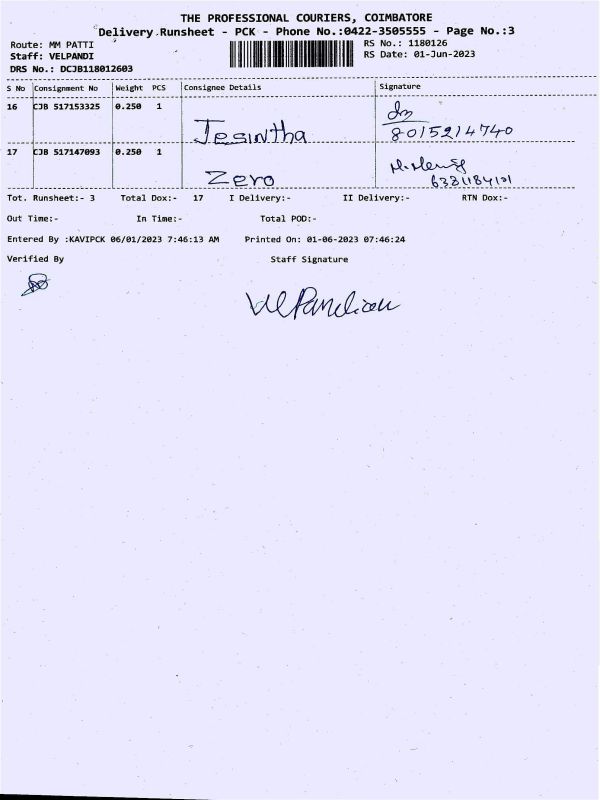 THE PROFESSIONAL COURIERS, COIMBATORE
Delivery Runsheet - PCK - Phone No.:0422-3505555 - Page No.:3
Route: MM PATTI RS No.: 1180126
Staff: VELPANDI RS Date: 01-Jun-2023
DRS No.: DCJB118012603
S No Consignment No Weight PCS Consignee Details Signature
16 CJB 517153325 0.250 1
Jesintha 8015214740
17 CJB 517147093 0.250 1
Zero
Tot. Runsheet:- 3 Total Dox:- 17 I Delivery:- II Delivery:- RTN Dox:-
Out Time:- In Time:- Total POD:-
Entered By :KAVIPCK 06/01/2023 7:46:13 AM Printed On: 01-06-2023 07:46:24
Verified By Staff Signature
VelPandian